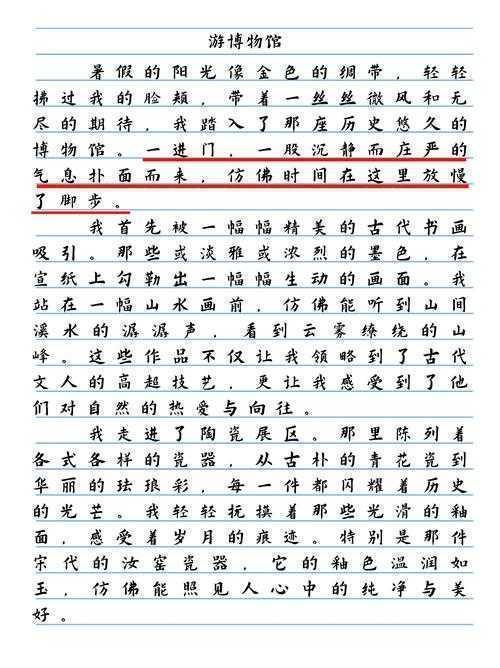 游博物馆
暑假的阳光像金色的绸带，轻轻
拂过我的脸颊，带着一丝丝微风和无
尽的期待，我踏入了那座历史悠久的
博物馆。一进门，一股沉静而庄严的
气息扑面而来，仿佛时间在这里放慢
了脚步。
我首先被一幅幅精美的古代书画
吸引。那些或淡雅或浓烈的墨色，在
宣纸上勾勒出一幅幅生动的画面。我
站在一幅山水画前，仿佛能听到山间
溪水的潺潺声，看到云雾缭绕的山
峰。这些作品不仅让我领略到了古代
文人的高超技艺，更让我感受到了他
们对自然的热爱与向往。
我走进了陶瓷展区。那里陈列着
各式各样的瓷器，从古朴的青花瓷到
华丽的珐琅彩，每一件都闪耀着历史
的光芒。我轻轻抚摸着那些光滑的釉
面，感受着岁月的痕迹。特别是那件
宋代的汝窑瓷器，它的釉色温润如
玉，仿佛能照见人心中的纯净与美
好。